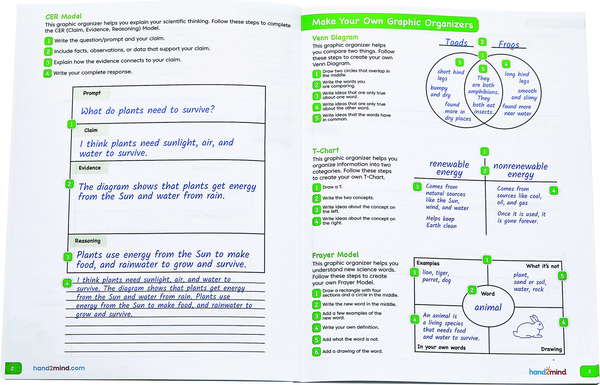 CER Model
This graphic organizer helps you explain your scientific thinking. Follow these steps to complete
the CER (Claim, Evidence, Reasoning) Model.
1 Write the question/prompt and your claim.
2 Include facts, observations, or data that support your claim.
3 Explain how the evidence connects to your claim.
4 Write your complete response.
Prompt
What do plants need to survive?
1
Claim
I think plants need sunlight, air, and
water to survive.
Evidence
2
The diagram shows that plants get energy
from the Sun and water from rain.
Reasoning
3
Plants use energy from the Sun to make
food, and rainwater to grow and survive.
4
I think plants need sunlight, air, and water to
survive. The diagram shows that plants get energy
from the Sun and water from rain. Plants use
energy from the Sun to make food, and rainwater to
grow and survive.
2
hand2mind.com
Make Your Own Graphic Organizers
Venn Diagram
This graphic organizer helps
you compare two things. Follow
these steps to create your own
Venn Diagram.
1 Draw two circles that overlap in
the middle.
2 Write the words you
are comparing.
3 Write ideas that are only true
about one word.
4 Write ideas that are only true
about the other word.
5 Write ideas that the words have
in common.
Toads
2
Frogs
1
3
5
4
short hind
legs
bumpy
and dry
found
more in
dry places
They
are both
amphibians.
They
both eat
insects.
long hind
legs
smooth
and slimy
found more
near water
T-Chart
This graphic organizer helps you
organize information into two
categories. Follow these steps
to create your own T-Chart.
1 Draw a T.
2 Write the two concepts.
3 Write ideas about the concept on
the left.
4 Write ideas about the concept on
the right.
1
renewable
energy
2
nonrenewable
energy
3
Comes from
natural sources
like the Sun,
wind, and water
Helps keep
Earth clean
Comes from
sources like coal,
oil, and gas
Once it is used, it
is gone forever.
4
Frayer Model
This graphic organizer helps you
understand new science words.
Follow these steps to create
your own Frayer Model.
1 Draw a rectangle with four
sections and a circle in the middle.
2 Write the new word in the middle.
3 Add a few examples of the
new word.
4 Write your own definition.
5 Add what the word is not.
6 Add a drawing of the word.
Examples
1
What it's not
lion, tiger,
parrot, dog
plant,
sand or soil,
water, rock
5
2
Word
animal
4
An animal is
a living species
that needs food
and water to survive.
In your own words
Drawing
hand2mind.
3